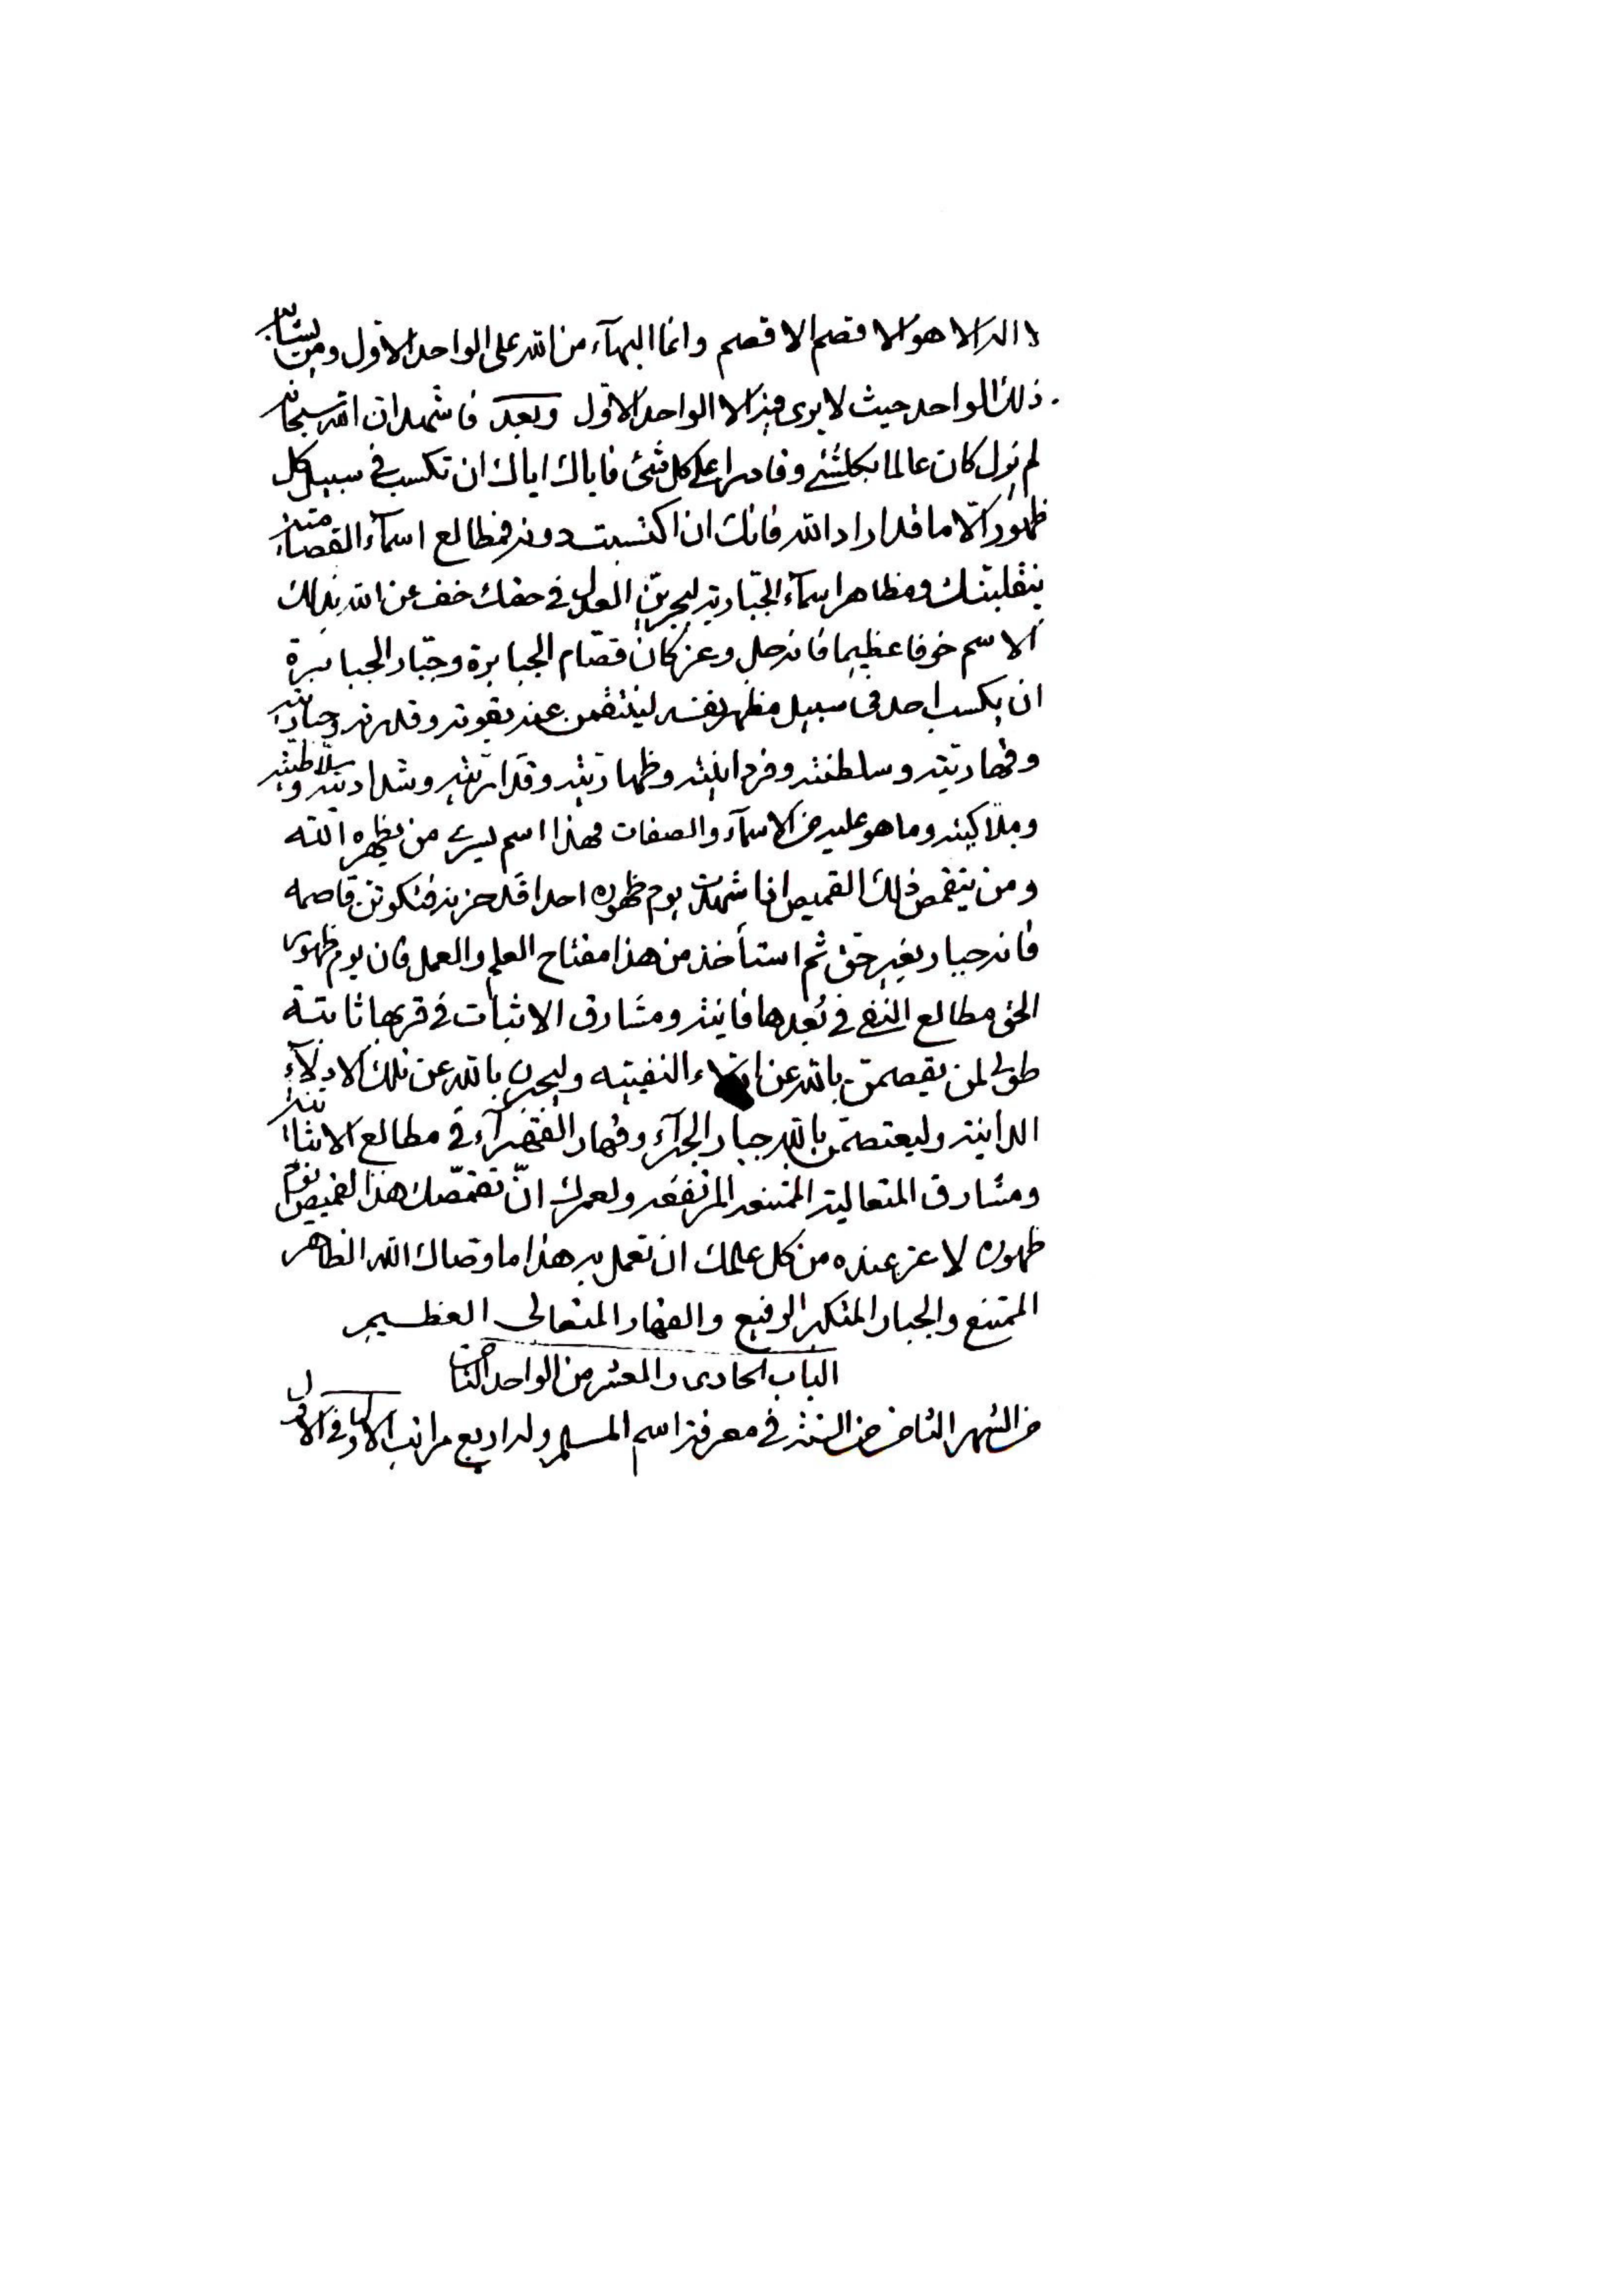 لا اله الا هو الاقصم الاقصم وانما البهآء من الله على الواحد الاول ومن يشابه
ذلك الواحد حيث لا يرى فيه الا الواحد الاول وبعد فاشهد ان الله سبحانه
لم يزل كان عالما بكلشئ وقادرا على كل شئ فاياك اياك ان تكسب في سبيل كل
ظهور الا ما قد اراد الله فانك ان اكتسبت دونه فمطالع اسمآء القصامية
ينقلبنك ومظاهر اسمآء الجبارية ليجرين العدل في حقك خف عن الله بذلك
الاسم خوفا عظيما فانه جل وعز كان قصام الجبابرة وجبار الجبابرة
ان يكسب احد في سبيل مظهر نفسه لينتقمن عنه بقوته وقدرته وجباريته
وقهاريته وسلطنته وفردانيته وظهاريته وقدارته وشداديته وسلاطيته
وملاكيته وما هو عليه من الاسمآء والصفات فهذا اسم لسرى من يظهره الله
ومن يتقمص ذلك القميص اذا شهدت يوم ظهوره احدا قد حزنه فتكونن قاصمه
فانه جبار بغير حق ثم استأخذ من هذا مفتاح العلم والعمل فان يوم ظهور
الحق مطالع النفى في بُعدها فانية ومشارق الاثبات في قربها ثابتة
طوبى لمن يقصمن بالله عن النفيتيه وليجبرن بالله عن تلك الادلآء
الدانية وليعتصمن بالله جبار الجبرآء وقهار القهرآء في مطالع الاثباتية
ومشارق المتعالية الممتنعه المرتفعه ولعمرك ان تقمصك هذا القميص يوم
ظهوره لاعز عنده من كل علمك ان تعمل به هذا ما وصاك الله الظاهر
الممتنع والجبار المتكبر الرفيع والقهار المتعالى العظيم
الباب الحادى والعشر من الواحد الثامن
من الشهر الثامن من السنة في معرفة اسم المسلم وله اربع مراتب الاول في الاول